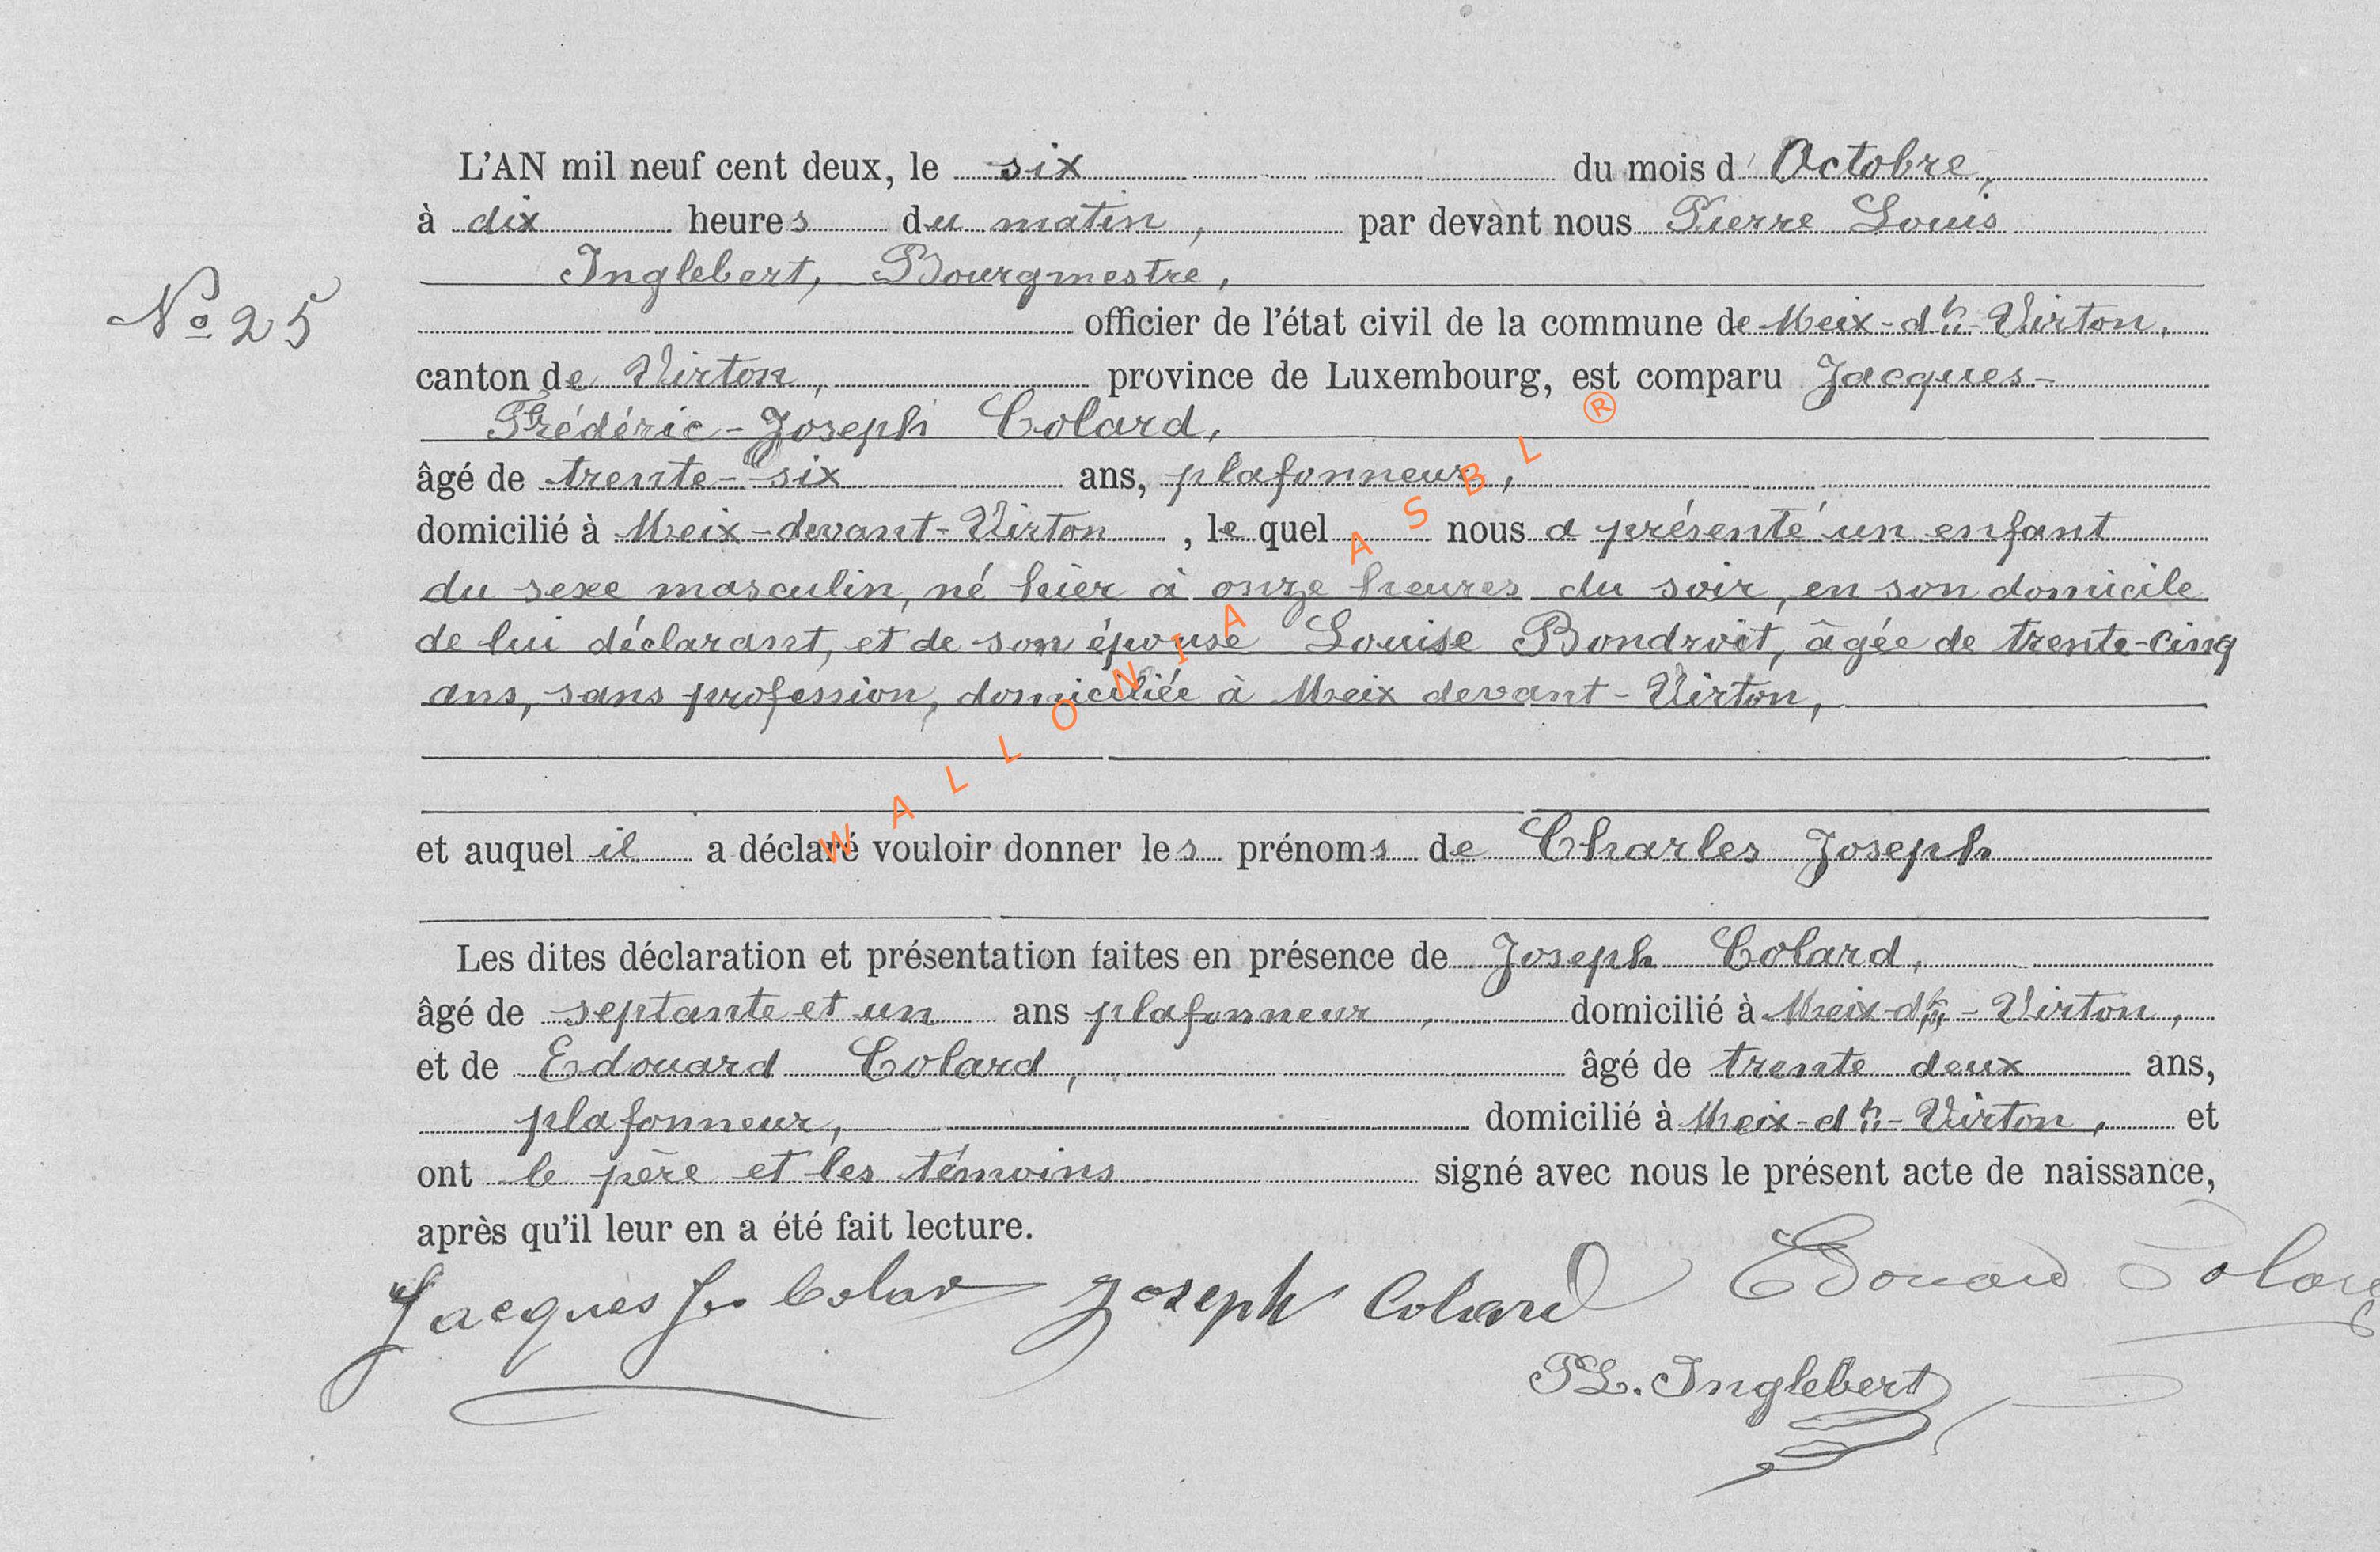 L'AN mil neuf cent deux, le six du mois d'Octobre,
à dix heures du matin, par devant nous Pierre Louis
Inglebert, Bourgmestre,
Nº 25
officier de l'état civil de la commune de Meix-dt-Virton,
canton de Virton, province de Luxembourg, est comparu Jacques-
Frédéric-Joseph Colard,
âgé de trente-six ans, plafonneur,
domicilié à Meix-devant-Virton, le quel nous a présenté un enfant
du sexe masculin, né hier à onze heures du soir, en son domicile
de lui déclarant, et de son épouse Louise Bondroit, âgée de trente-cinq
ans, sans profession, domiciliée à Meix devant-Virton,
et auquel il a déclaré vouloir donner les prénoms de Charles Joseph
Les dites déclaration et présentation faites en présence de Joseph Colard,
âgé de septante et un ans plafonneur, domicilié à Meix-dt-Virton,
et de Edouard Colard, âgé de trente deux ans,
plafonneur, domicilié à Meix-dt-Virton, et
ont le père et les témoins signé avec nous le présent acte de naissance,
après qu'il leur en a été fait lecture.
Jacques Colar Joseph Colard Edouard Colard
PL. Inglebert
WALLONIA ASBL ®